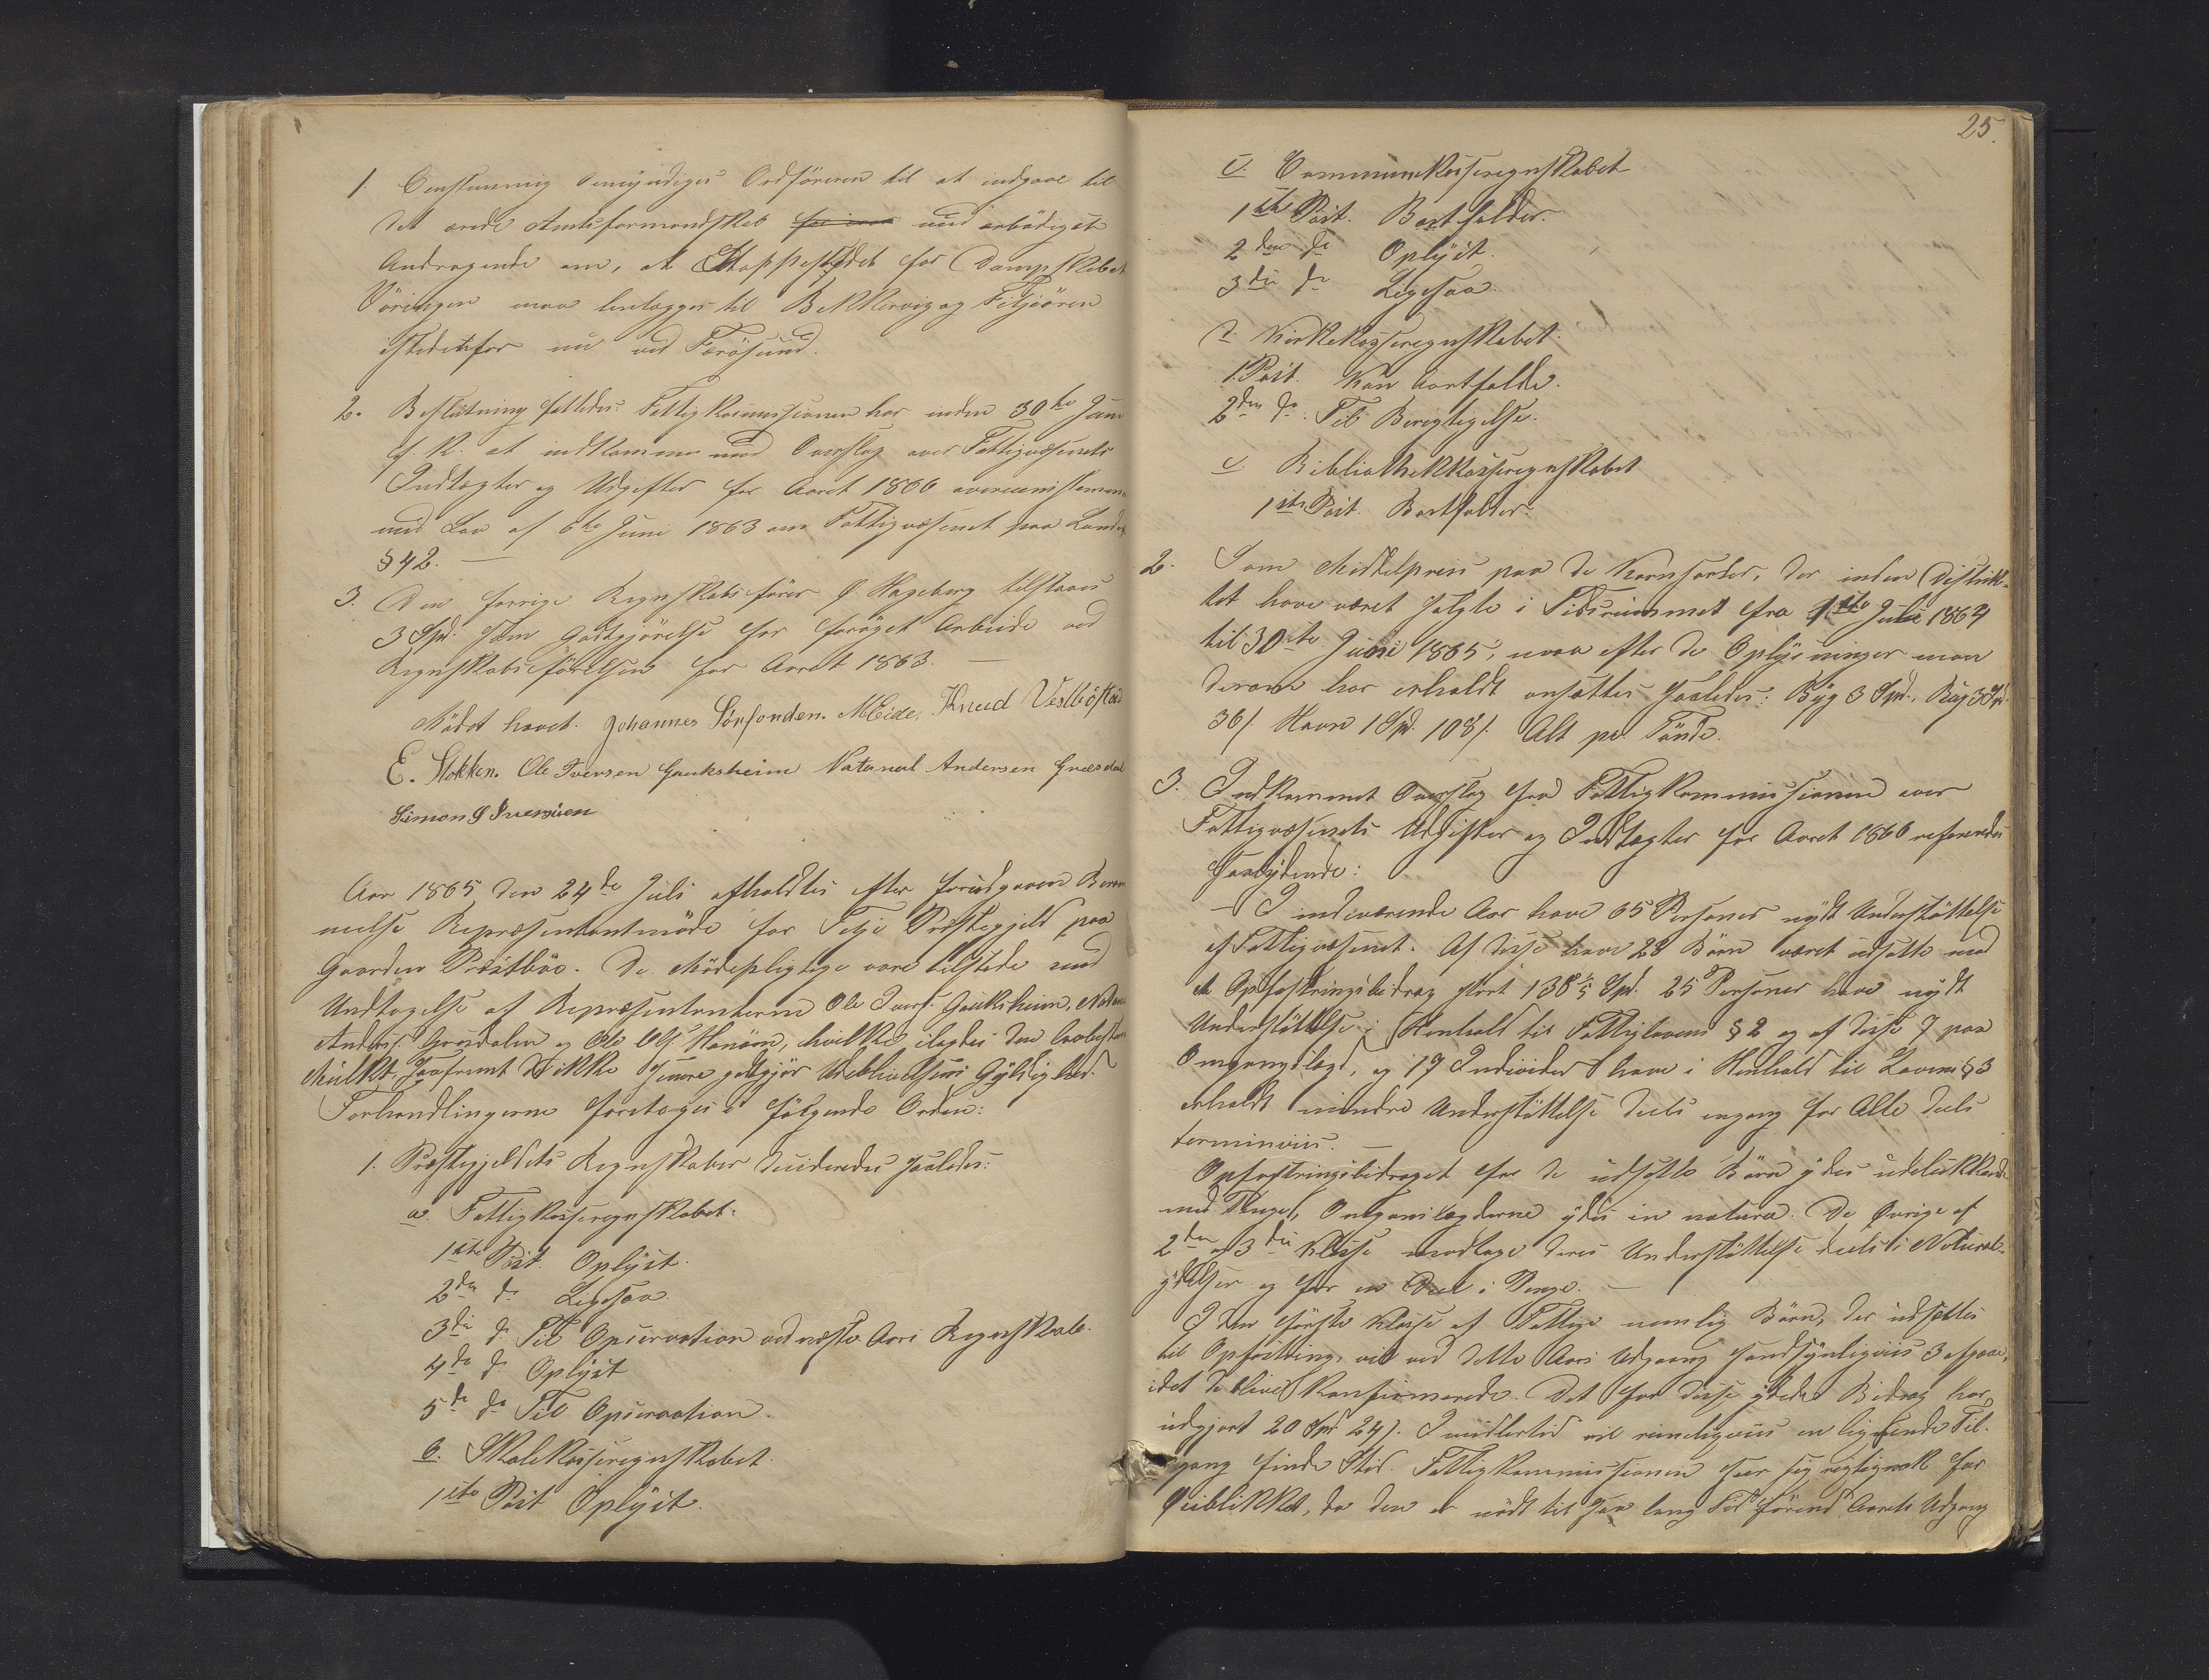 1. Eenstemmig bemyndiges Ordføreren til at indgaae til
det ærede Amtsformandskab med ærbødigst
Andragende om, at Stoppestedet for Dampskibet
Vøringen maa henlægges til Bekkervig og Fitjeøren
istedetfor nu ved Færøsund.
2. Beslutning fattedes: Fattigkommissionen har inden 30te Juni
at indkomme med Overslag over Fattigvæsenets
Indtægter og Udgifter for Aaret 1866 overeensstemmende
med Lov af 6te Juni 1863 om Fattigvæsenet paa Landet
§ 42. —
3. Den forrige Regnskabsfører Hageberg tilstaaes
3 Spd. som Godtgjørelse for forøget Arbeide ved
Regnskabsførelsen for Aaret 1863. —
Mødet hævet. Johannes Sørfonden. MEide, Knud Vestbøstad
E. Stokken. Ole Iversen Gauksheim Natanal Andersen Græsdal
Simon S Iversen
Aar 1865 den 24de Juli afholdtes efter forudgaaen Beram
melse Repræsentantmøde for Fitje Præstegjeld paa
Gaarden Præstbøe. De Mødepligtige vare tilstede med
Undtagelse af Repræsentanterne Ole Ivers. Gauksheim,
Anders. Græsdalen og Ole Hanøen, hvilke ilagdes den lovbestemte
Mulkt, saafremt de ikke senere godtgjør Udeblivelsens Gyldighed.
Forhandlingerne foretoges i følgende Orden:
1. Præstegjeldets Regnskaber decideredes saaledes:
a. Fattigkasseregnskabet.
1ste Post. Oplyst.
2den do Ligesaa.
3die do Til Observation ved næste Aars Regnskab.
4de do Oplyst
5te do Til Observation.
b. Skolekasseregnskabet.
1ste Post Oplyst.
25.
c. Communekasseregnskabet
1ste Post. Bortfalder.
2den do Oplyst.
3die do Ligesaa.
d. Kirkekasseregnskabet.
1. Post. Kan bortfalde.
2den do. Til Berigtigelse.
e. Bibliothekkasseregnskabet
1ste Post. Bortfalder.
2. Som Middelpris paa de Kornsorter, der inden Distrik-
tet have været solgte i Tidsrummet fra 1ste Juli 1864
til 30te Juni 1865, maa efter de Oplysninger man
derom har erholdt ansættes saaledes: Byg 3 Spd., Rug 3 Spd.
36 s. Havre 1 Spd. 108 s. Alt pr. Tønde.
3. Indkommet Overslag fra Fattigkommissionen over
Fattigvæsenets Udgifter og Indtægter for Aaret 1866 refereredes
saalydende:
— I indeværende Aar have 65 Personer nydt Understøttelse
af Fattigvæsenet. Af disse have 28 Børn været udsatte med
et Opfostringsbidrag stort 138 1/5 Spd. 25 Personer have nydt
Understøttelse i Henhold til Fattiglovens § 2 og af disse 7 paa
Omgangslægd, og 19 Individer have i Henhold til Lovens § 3
erholdt mindre Understøttelse deels engang for Alle deels
terminviis. —
Opfostringsbidraget for de udsatte Børn ydes udelukkende
med Penge, Omgangslægderne ydes in natura. De Øvrige af
2den og 3die Klasse modtage deres Understøttelse deels i Natural-
ydelser og for en Deel i Penge. —
I den første Klasse af Fattige nemlig Børn, der udsættes
til Opfostring, vil ved dette Aars Udgang sandsynligviis 3 afgaae,
idet de blive konfirmerede. Det for disse ydede Bidrag har
udgjort 20 Spd 24 s. Imidlertid vil rimeligviis en lignende Til-
gang finde Sted. Fattigkommissionen seer sig rigtignok for
Øieblikket, da den er nødt til saa lang Tid førend Aarets Udgang